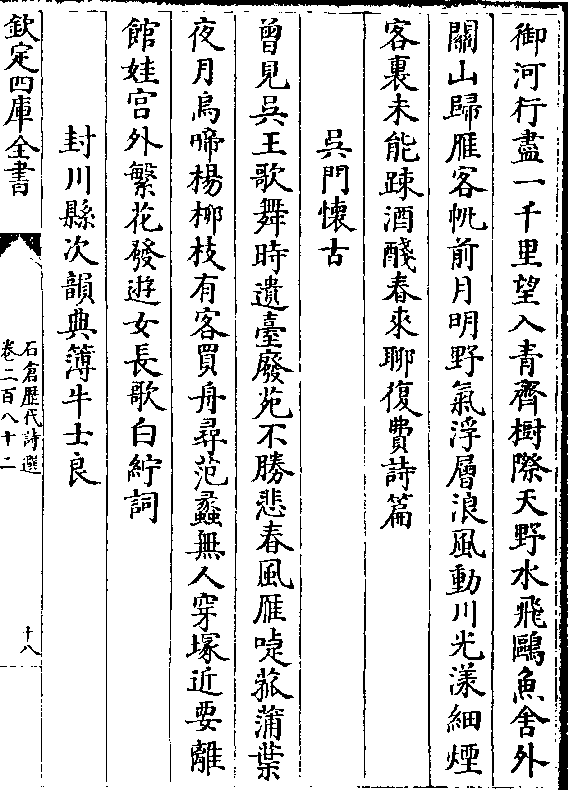 御河行盡一千里望入青齊樹際天野水飛鷗魚舍外
關山歸雁客帆前月明野氣浮層浪風動川光漾細煙
客裏未能疎酒醆春來聊復費詩篇
吳門懷古
曾見吳王歌舞時遺臺廢苑不勝悲春風雁唼菰蒲葉
夜月烏啼楊柳枝有客買舟尋范蠡無人穿塚近要離
館娃宫外繁花發遊女長歌白紵詞
封川縣次韻典簿牛士良
欽定四庫全書
石倉歷代詩選
卷二百八十二
十八